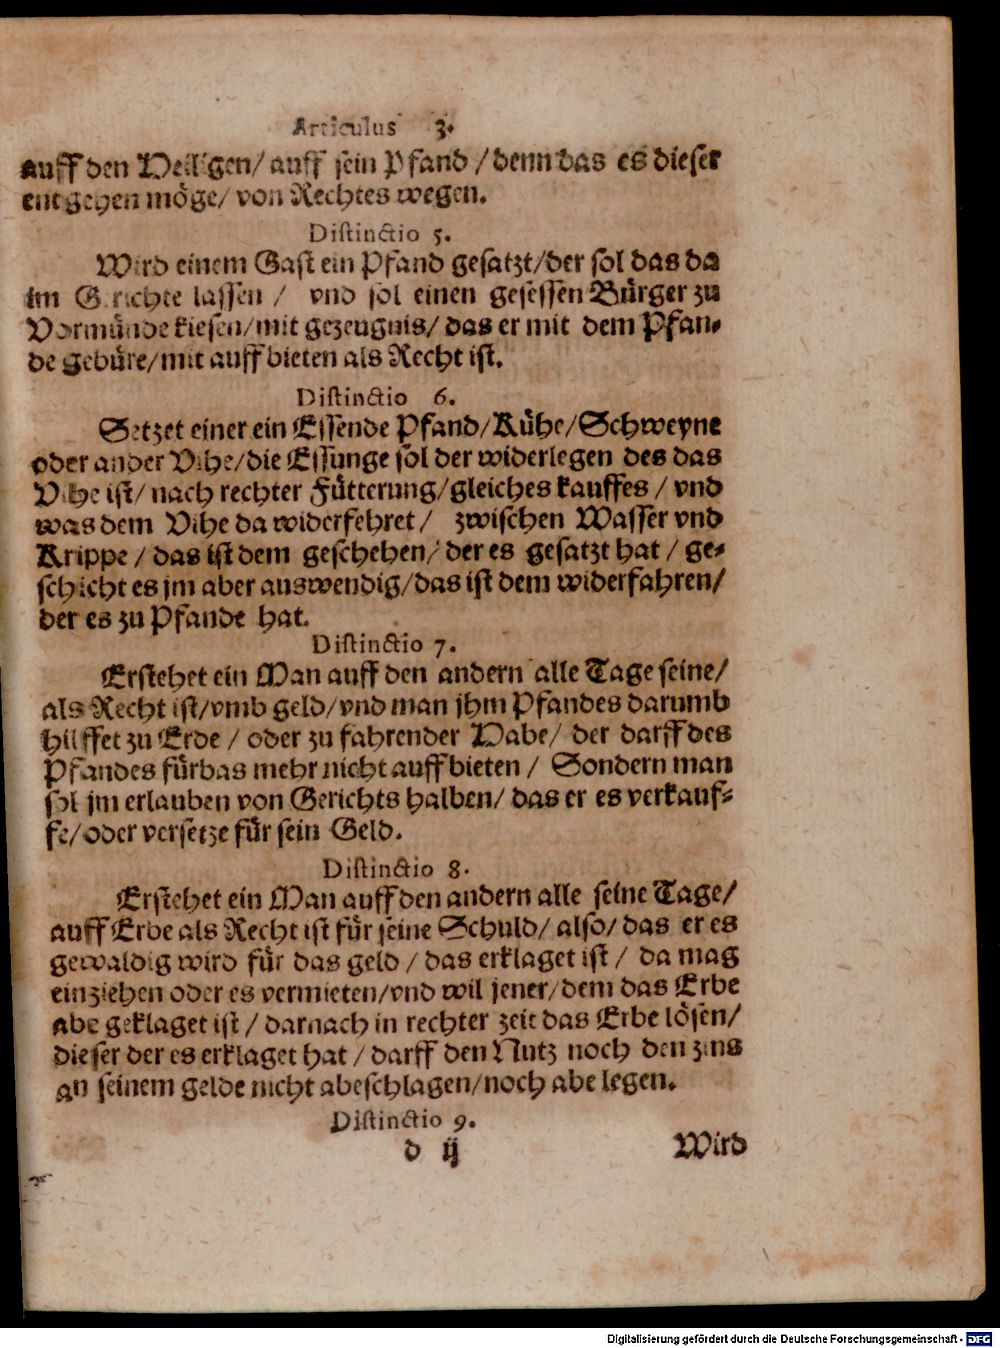 Articulus 3.
auff den Heiligen/ auff sein Pfand / denn das es dieser
entgehen möge/ von Rechtes wegen.
Distinctio 5.
Wird einem Gast ein Pfand gesatzt/der sol das da
im Gerichte lassen / vnd sol einen gesessen Bürger zu
Vormünde kiesen/mit gezeugnis/ das er mit dem Pfan-
de gebüre/mit auffbieten als Recht ist.
Distinctio 6.
Setzet einer ein Essende Pfand/Kühe/Schweyne
oder ander Vihe/die Essunge sol der widerlegen des das
Vihe ist/ nach rechter Fütterung/gleiches kauffes / vnd
was dem Vihe da widerfehret / zwischen Wasser vnd
Krippe / das ist dem geschehen/ der es gesatzt hat / ge-
schicht es jm aber auswendig/das ist dem widerfahren/
der es zu Pfande hat.
Distinctio 7.
Erstehet ein Man auff den andern alle Tage seine/
als Recht ist/vmb geld/vnd man jhm Pfandes darumb
hilffet zu Erde / oder zu fahrender Habe/ der darff des
Pfandes fürbas mehr nicht auffbieten / Sondern man
sol jm erlauben von Gerichts halben/ das er es verkauf-
fe/oder versetze für sein Geld.
Distinctio 8.
Erstehet ein Man auff den andern alle seine Tage/
auff Erbe als Recht ist für seine Schuld/ also/ das er es
gewaldig wird für das geld / das erklaget ist / da mag
einziehen oder es vermieten/vnd wil jener/dem das Erbe
abe geklaget ist / darnach in rechter zeit das Erbe lösen/
dieser der es erklaget hat / darff den Nutz noch den zins
an seinem gelde nicht abeschlagen/noch abe legen.
Distinctio 9.
d ij Wird
Digitalisierung gefördert durch die Deutsche Forschungsgemeinschaft - DFG